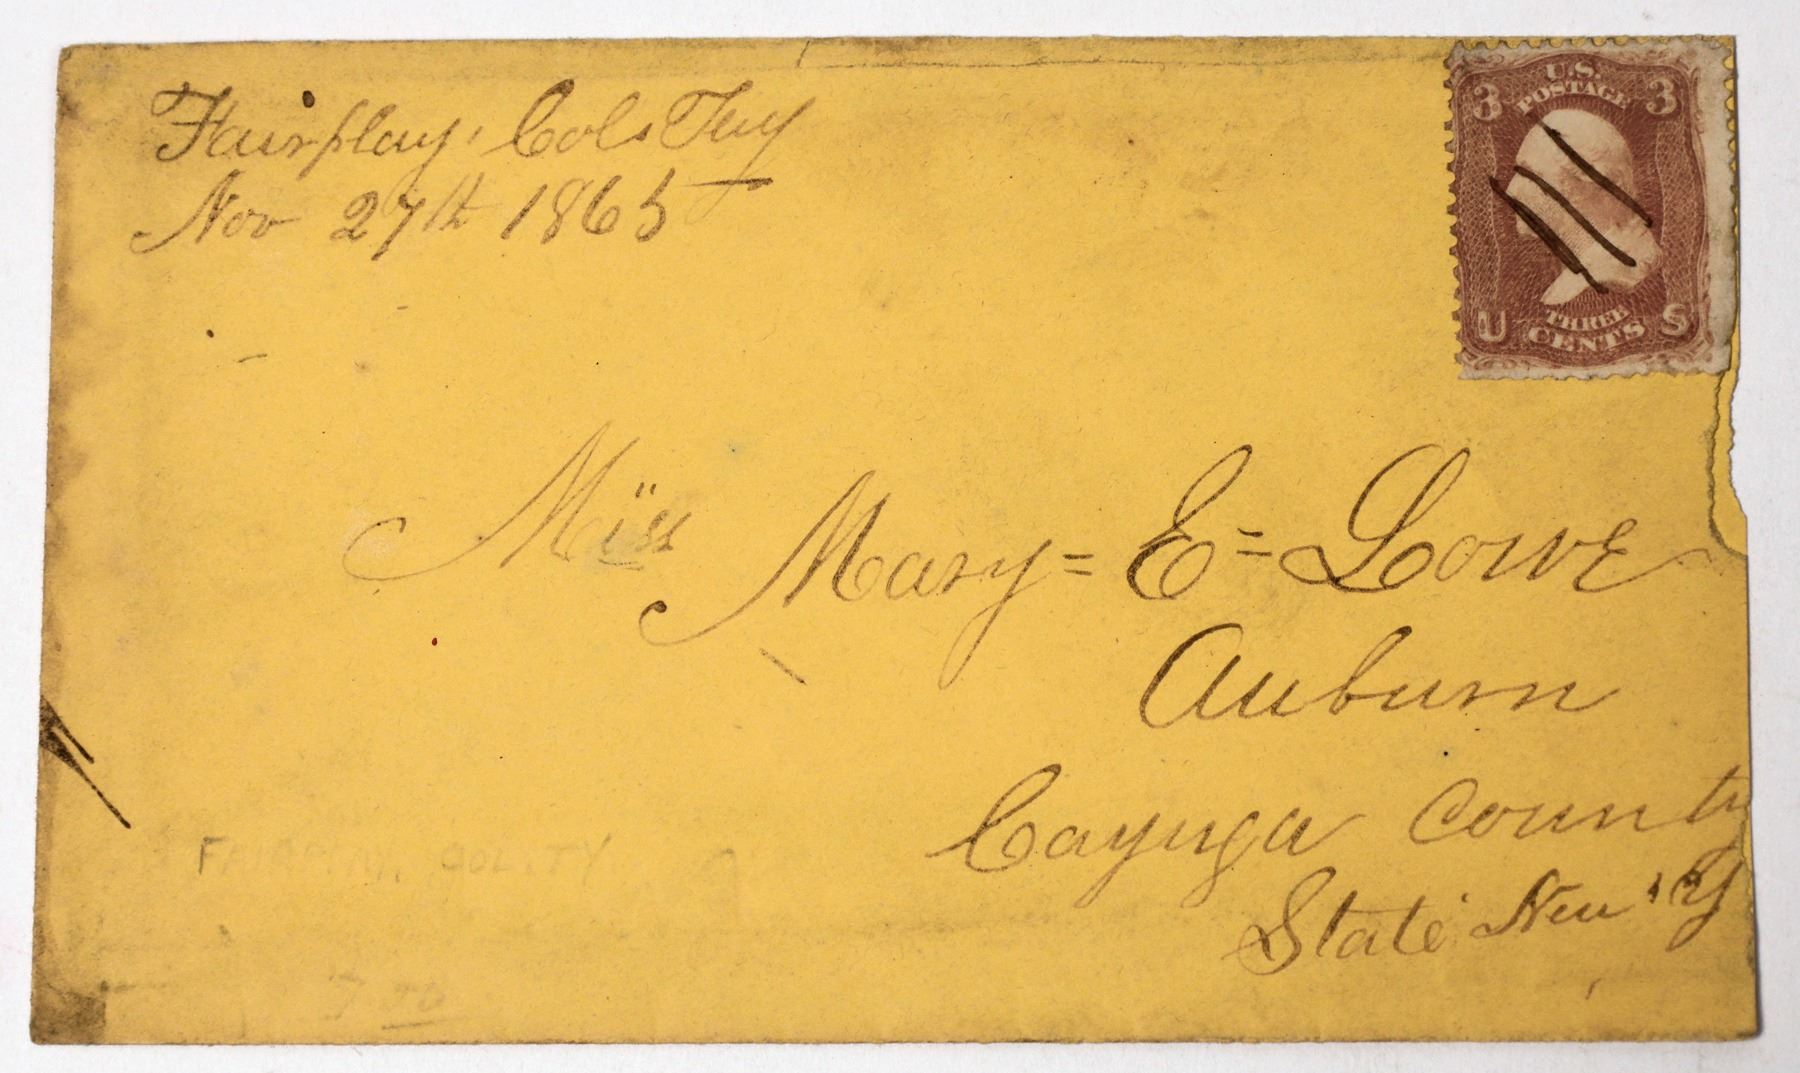 Fairplay, Col. Tery
Nov 27th 1865
U.S.
POSTAGE
3 3
U S
THREE
CENTS
Miss Mary = E = Lowe
Auburn
Cayuga County
State New Y
FAIRPLAY, COL TY